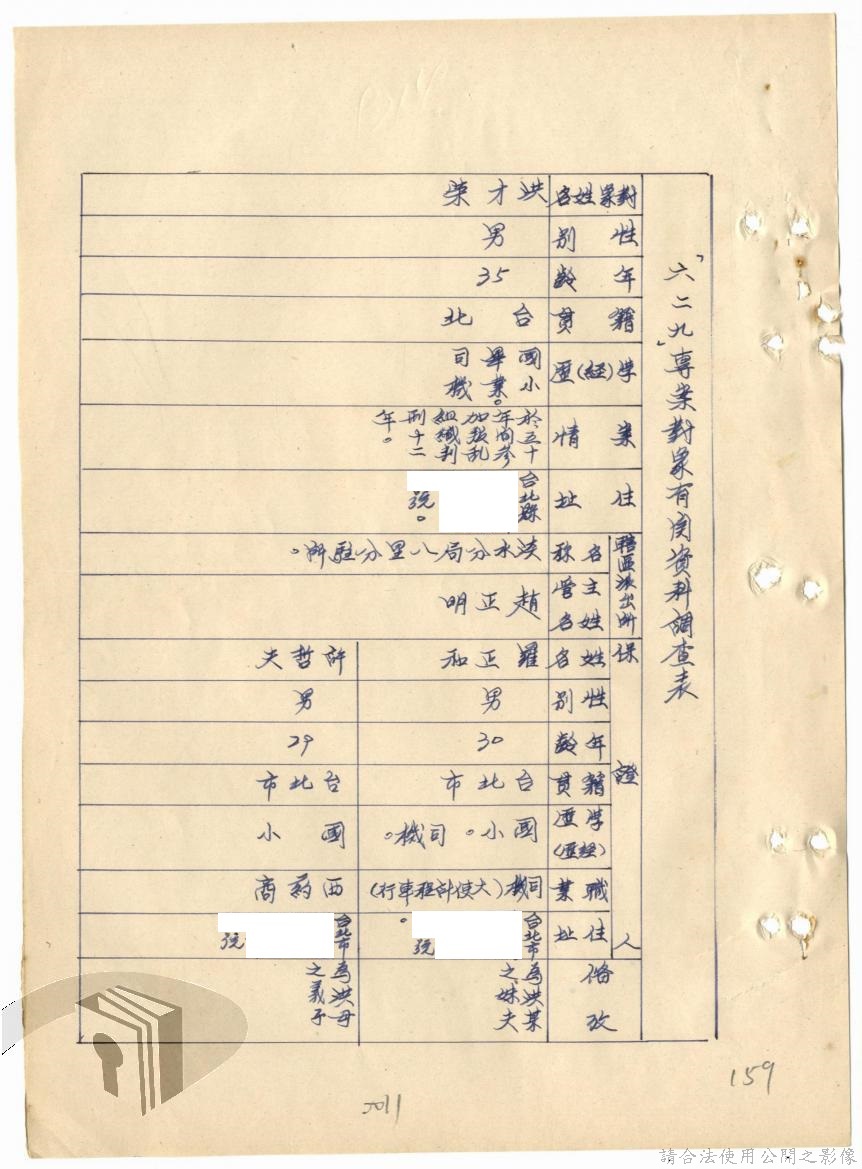 「六二九」專案對象有関資料調查表
對象姓名 洪才榮
性別 男
年齡 35
籍貫 台北
学(經)歷 國小畢業。司機
案情 於五十年間參加叛乱組織判刑十二年。
住址 台北縣 号。
轄區派出所
名称 淡水分局八里分駐所。
主管姓名 趙正明
保證人
姓名 羅正和 許哲夫
性別 男 男
年齡 30 29
籍貫 台北市 台北市
学歷(經歷) 國小。司機。 國小
職業 司機(大使計程車行) 西葯商
住址 台北市 号。 台北市 号
俻攷 為洪某之妹夫 為洪母之義子
159
請合法使用公開之影像